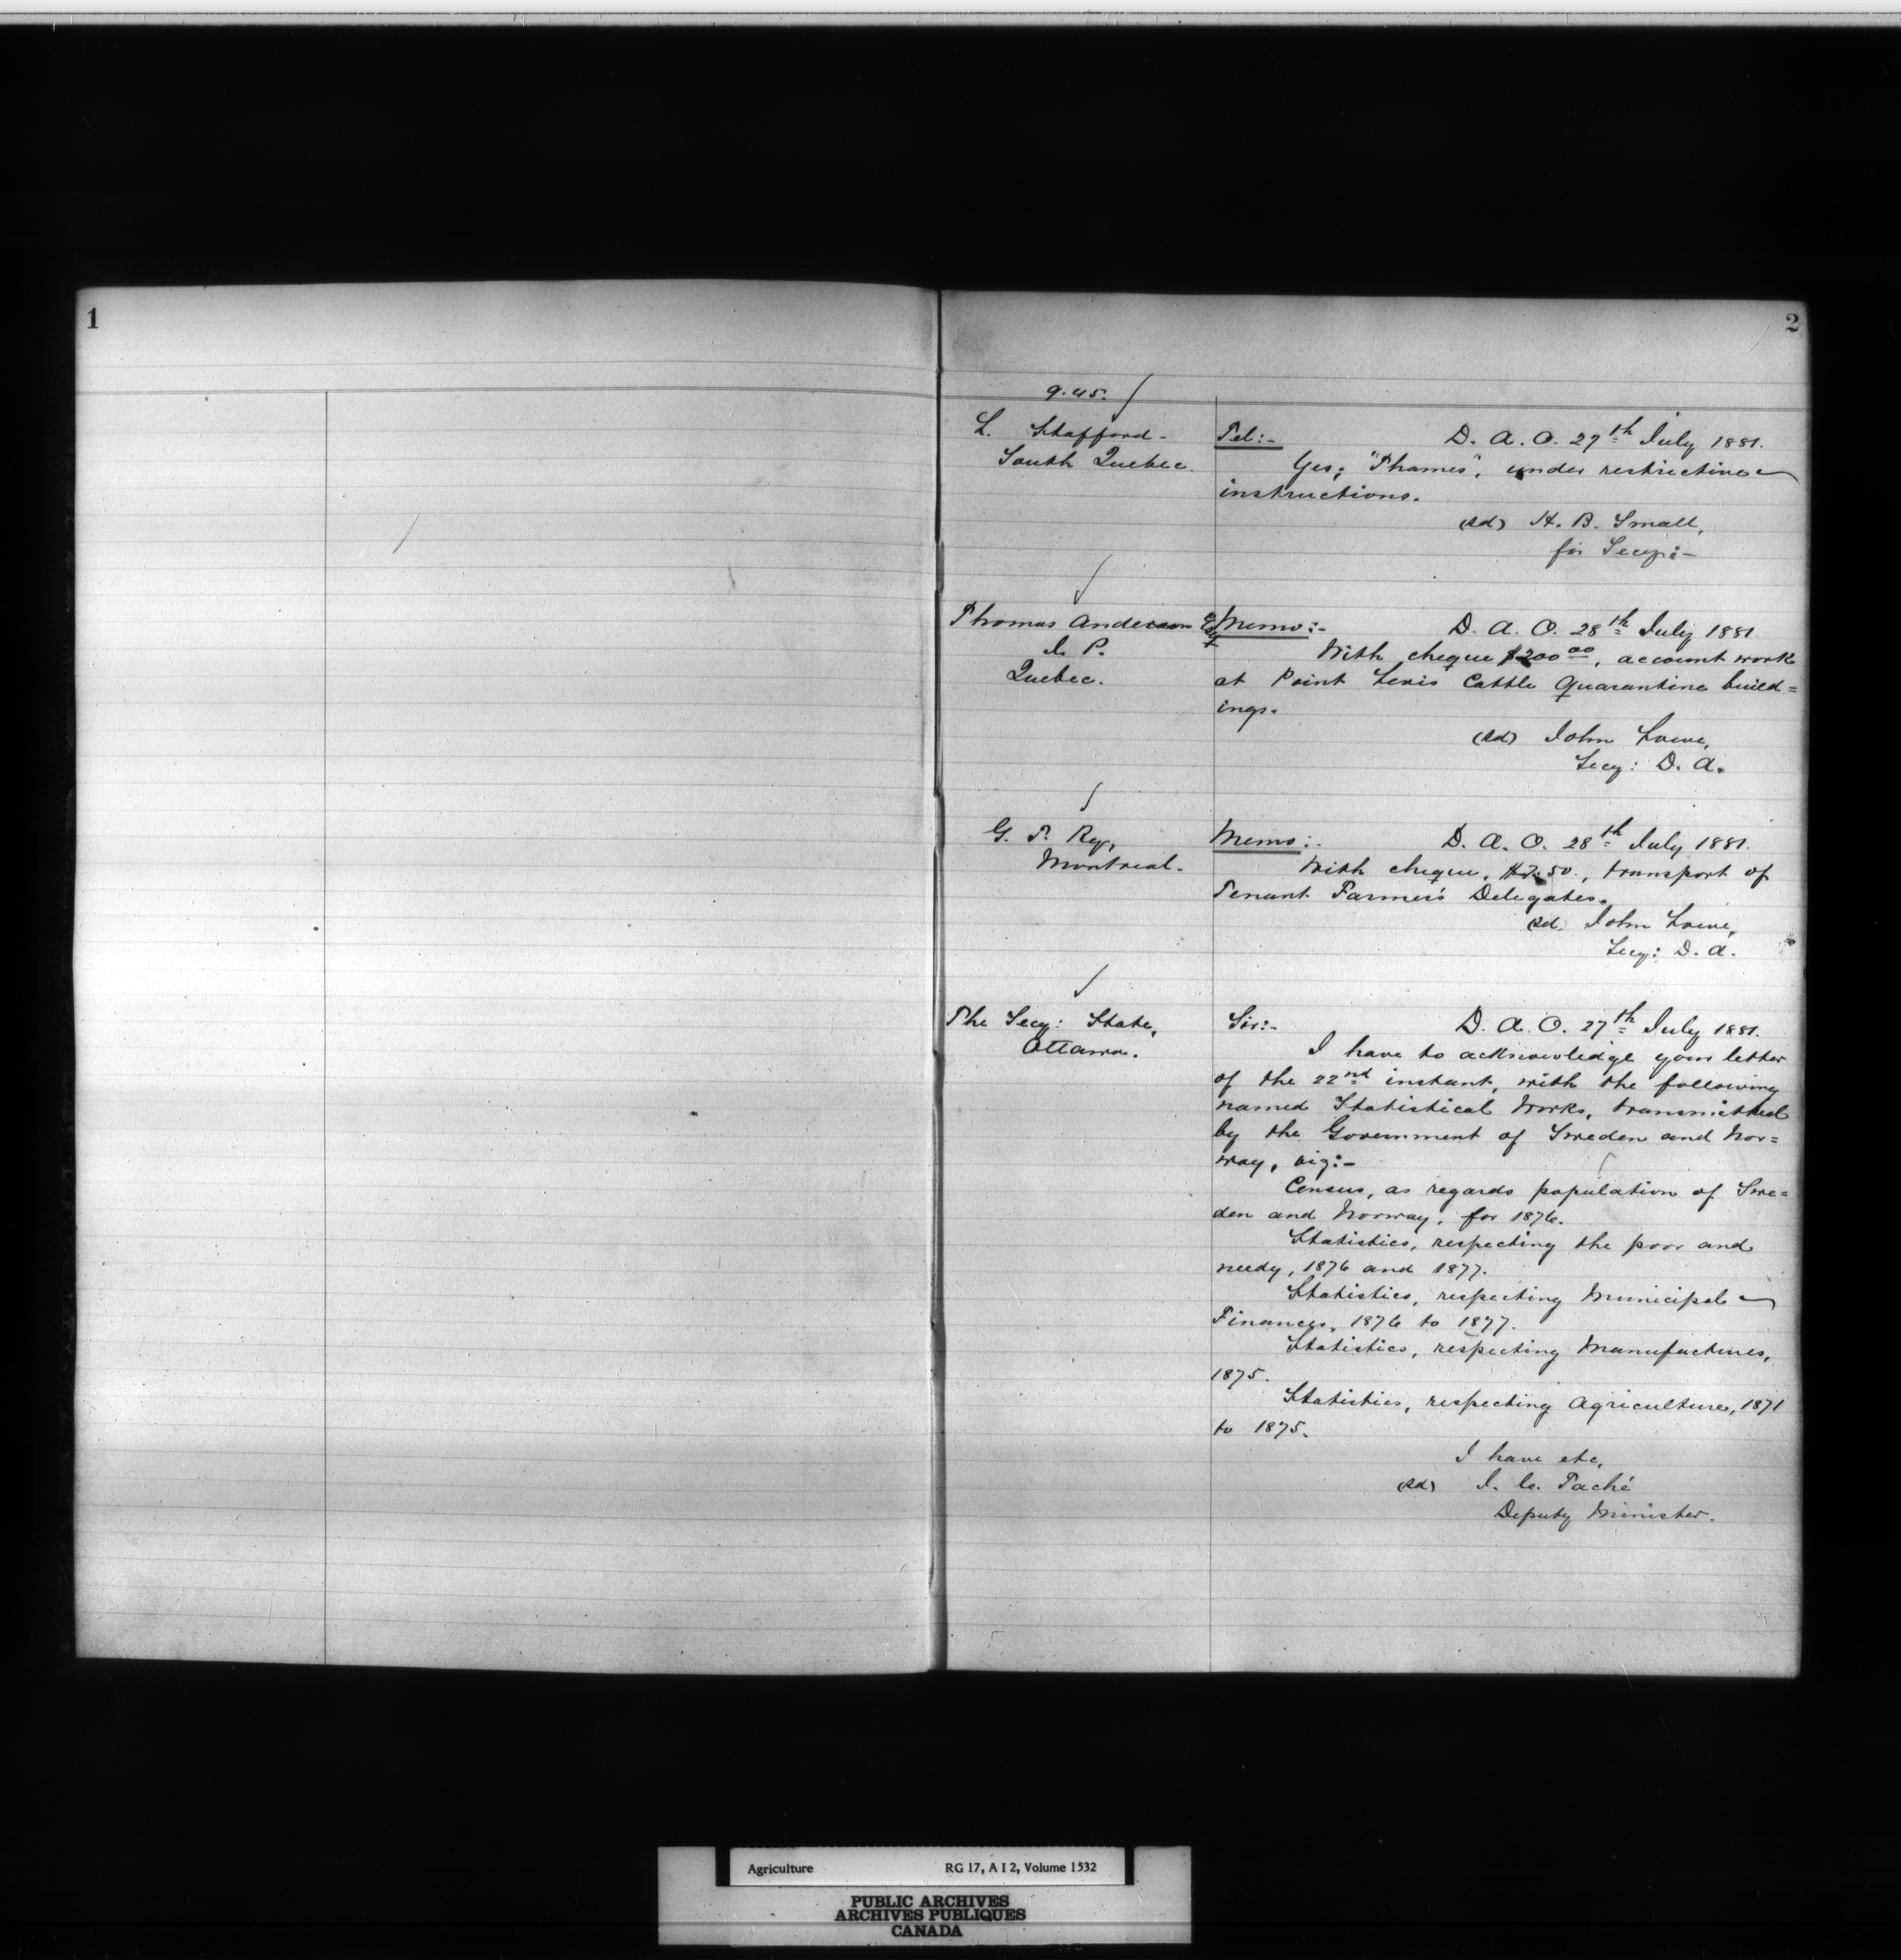 1
2
9.45.
L. Stafford-
South Quebec.
Tel:- D. A. O. 27th July 1881.
Yes; "Thames", under restrictive
instructions.
(sd) H. B. Small,
for Secy:-
Thomas Anderson Esq
J. P.
Quebec.
Memo:- D. A. O. 28th July 1881
With cheque $200 00, account work
at Point Levis Cattle Quarantine build=
ings.
(sd) John Lowe,
Secy: D. A.
G. T. Ry,
Montreal-
Memo:- D. A. O. 28th July 1881.
With cheque, $7.50., transport of
Tenant Farmer's Delegates.
(sd) John Lowe,
Secy: D. A.
The Secy: State,
Ottawa.
Sir:- D. A. O. 27th July 1881.
I have to acknowledge your letter
of the 22nd instant, with the following
named Statistical Works, transmitted
by the Government of Sweden and Nor=
way, viz:-
Census, as regards population of Swe=
den and Norway, for 1876.
Statistics, respecting the poor and
needy, 1876 and 1877.
Statistics, respecting Municipal
Finances, 1876 to 1877.
Statistics, respecting Manufactures,
1875.
Statistics, respecting Agriculture, 1871
to 1875.
I have etc,
(sd) J. C. Taché
Deputy Minister.
Agriculture RG 17, A I 2, Volume 1532
PUBLIC ARCHIVES
ARCHIVES PUBLIQUES
CANADA